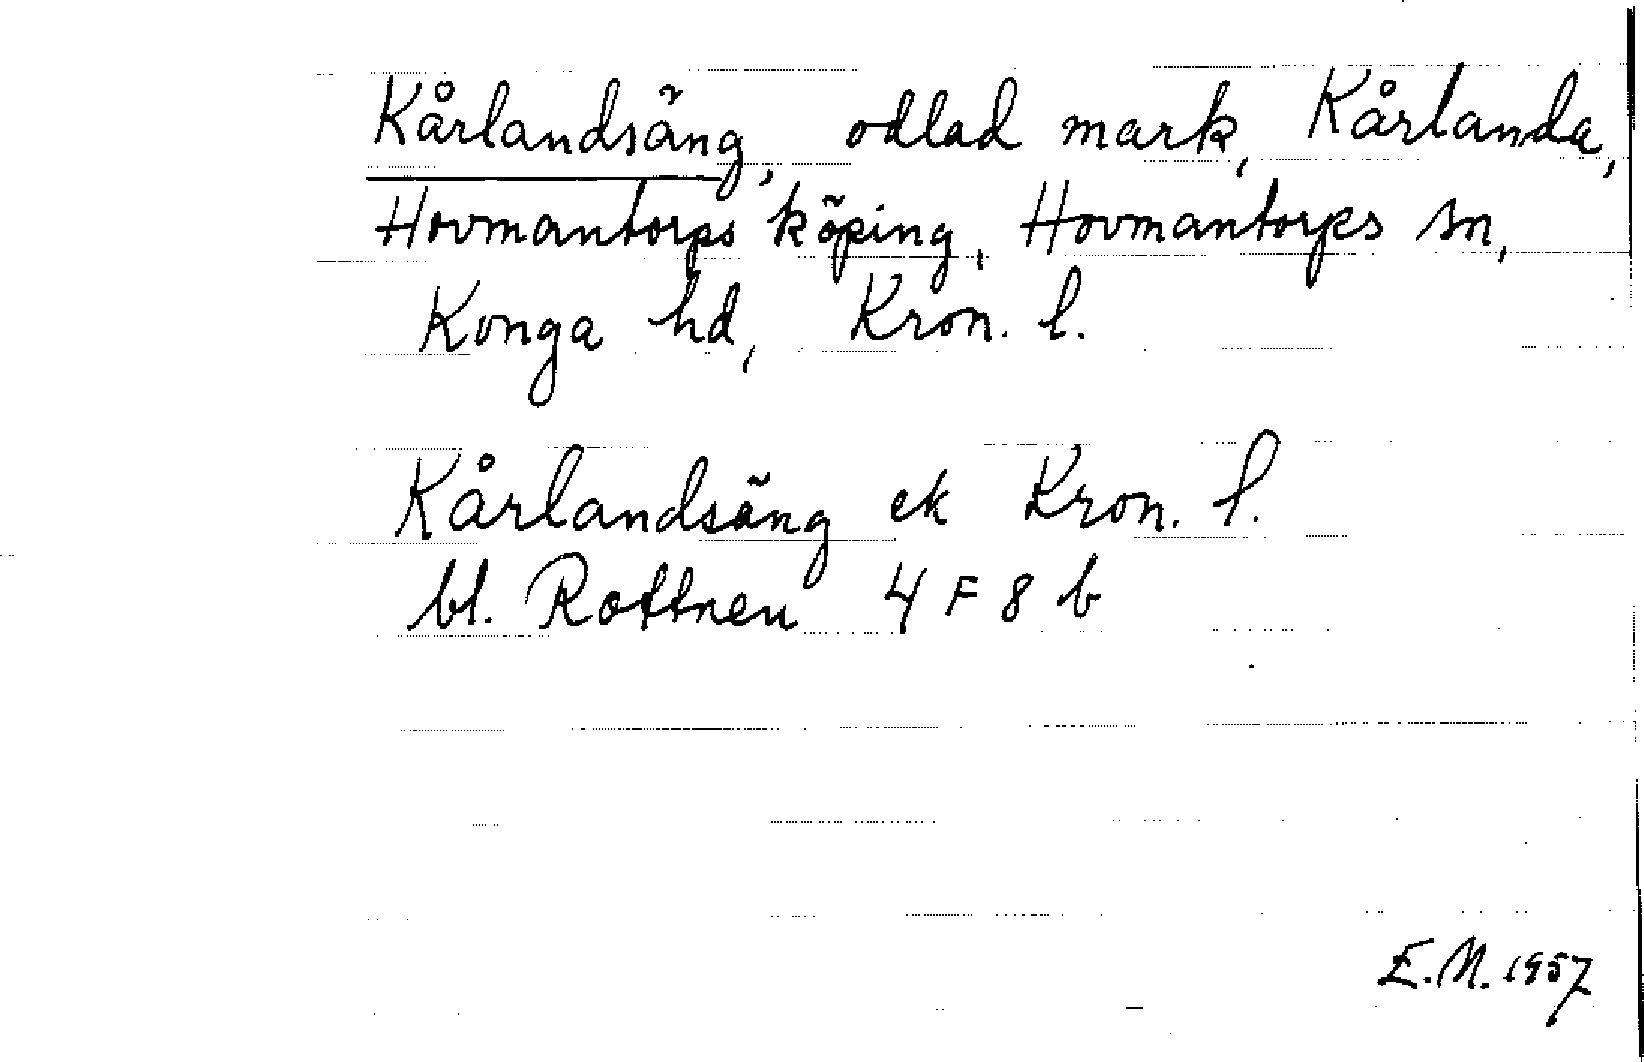 Kårlandsäng, odlad mark, Kårlanda,
Hovmantorps köping, Hovmantorps sn,
Konga hd, Kron. l.
Kårlandsäng ek Kron. l.
bl. Rottnen 4 F 8 b
E.M. 1957